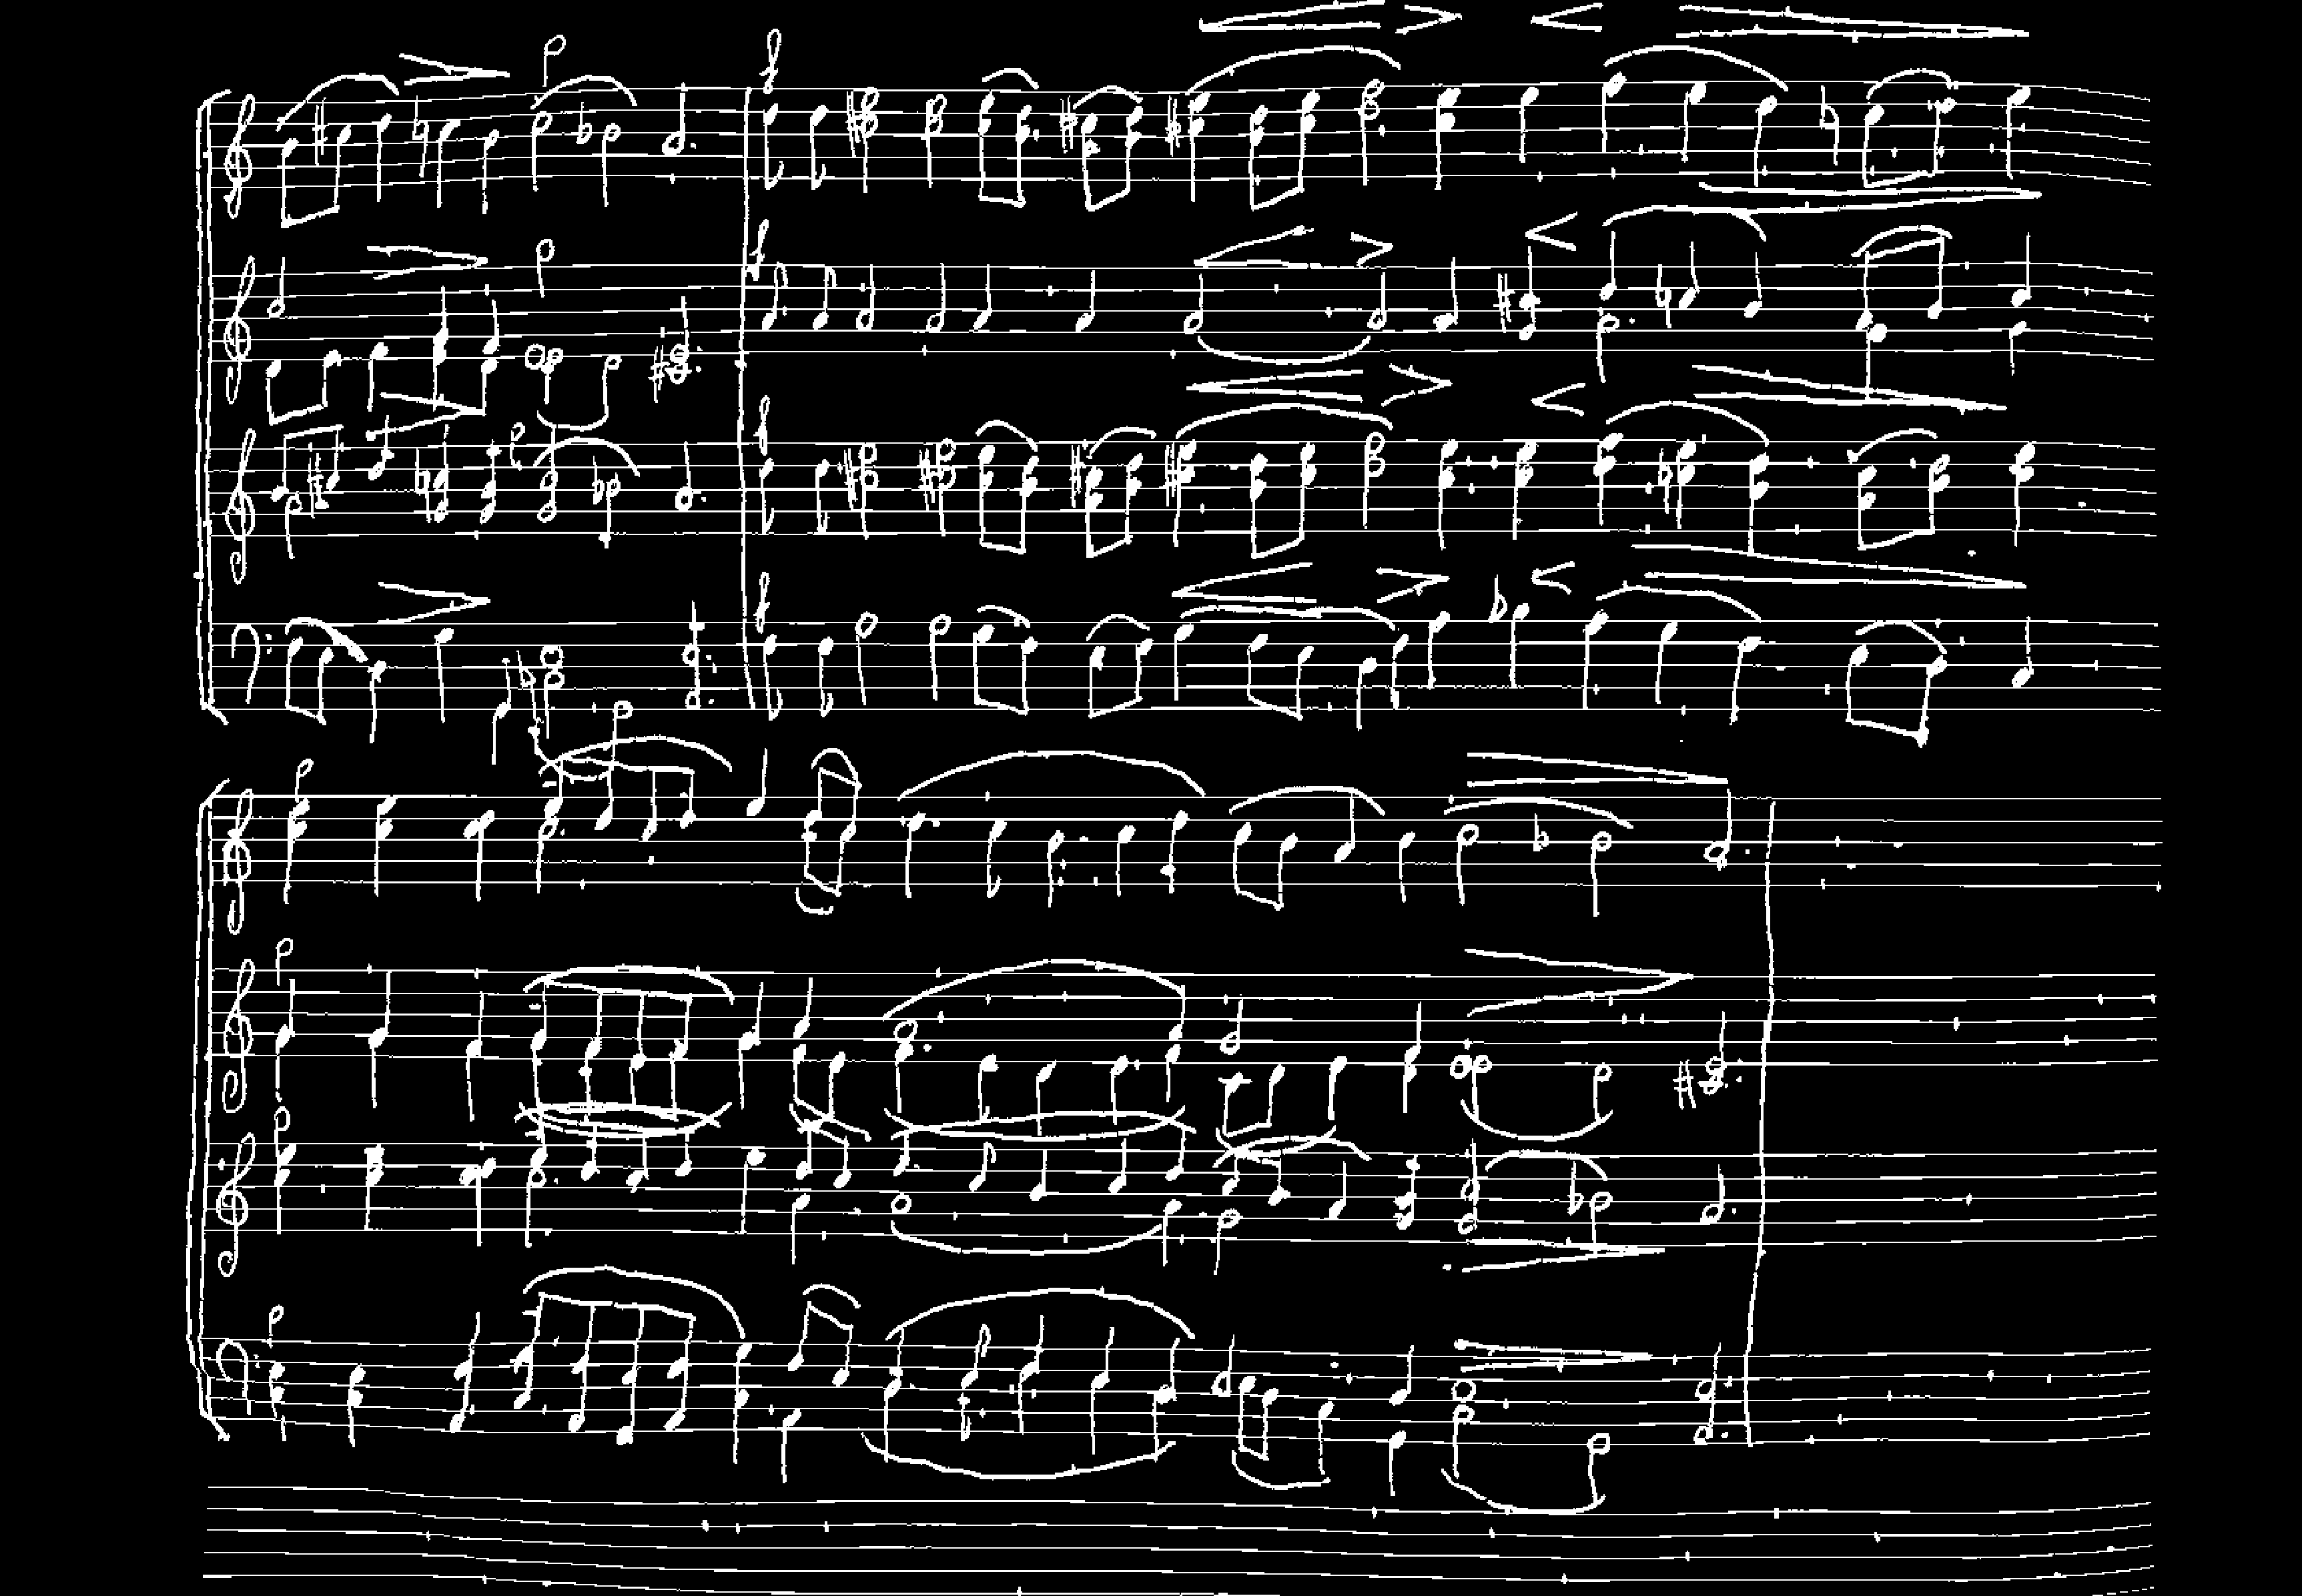 p f
p f
p f
f
p
p
p
p